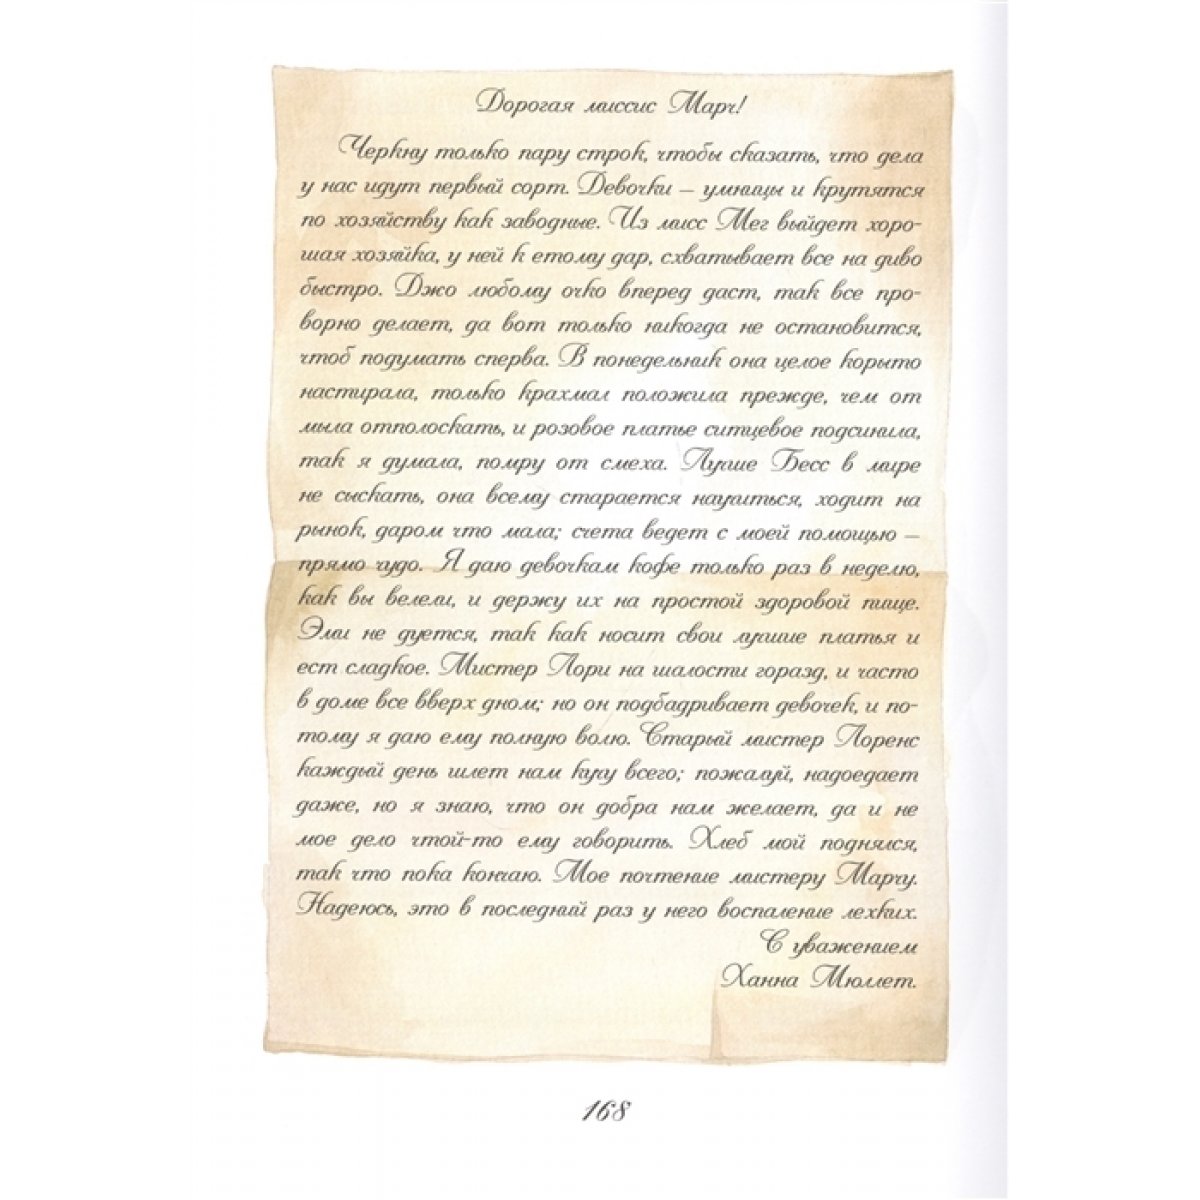 Дорогая миссис Марч!
Черкну только пару строк, чтобы сказать, что дела
у нас идут первый сорт. Девочки – умницы и крутятся
по хозяйству как заводные. Из мисс Мег выйдет хоро-
шая хозяйка, у ней к етому дар, схватывает все на диво
быстро. Джо любому очко вперед даст, так все про-
ворно делает, да вот только никогда не остановится,
чтоб подумать сперва. В понедельник она целое корыто
настирала, только крахмал положила прежде, чем от
мыла отполоскать, и розовое платье ситцевое подсинила,
так я думала, помру от смеха. Лучше Бесс в мире
не сыскать, она всему старается научиться, ходит на
рынок, даром что мала; счета ведет с моей помощью –
прямо чудо. Я даю девочкам кофе только раз в неделю,
как вы велели, и держу их на простой здоровой пище.
Эми не дуется, так как носит свои лучшие платья и
ест сладкое. Мистер Лори на шалости горазд, и часто
в доме все вверх дном; но он подбадривает девочек, и по-
тому я даю ему полную волю. Старый мистер Лоренс
каждый день шлет нам кучу всего; пожалуй, надоедает
даже, но я знаю, что он добра нам желает, да и не
мое дело чтой-то ему говорить. Хлеб мой поднялся,
так что пока кончаю. Мое почтение мистеру Марчу.
Надеюсь, это в последний раз у него воспаление лехких.
С уважением
Ханна Мюллет.
168